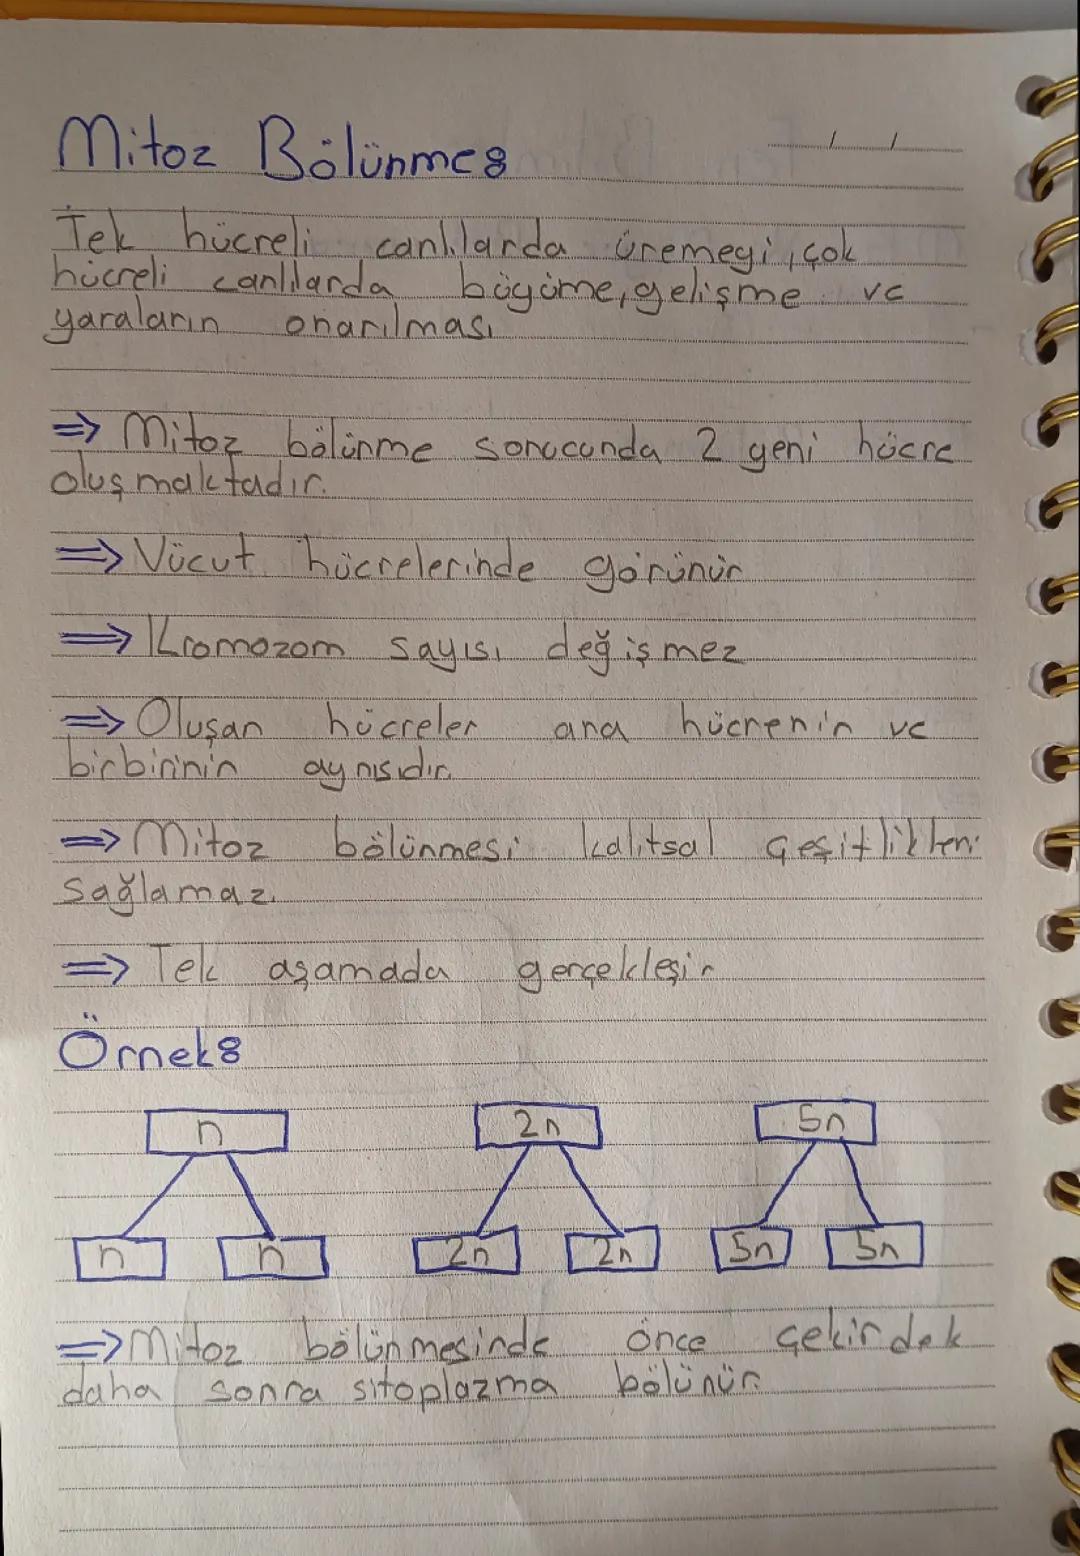 Mitoz Bölünme:
Tek hücreli canlılarda üremeyi, çok
hücreli canlılarda büyüme, gelişme ve
yaraların onarılması
=> Mitoz bölünme sonucunda 2 yeni hücre
oluşmaktadır.
=> Vücut hücrelerinde görünür
=> Kromozom sayısı değişmez
=> Oluşan hücreler ana hücrenin ve
birbirinin aynısıdır.
=> Mitoz bölünmesi kalıtsal çeşitlilikleri
sağlamaz.
=> Tek aşamada gerçekleşir
Örnek:
n 2n 5n
n n 2n 2n 5n 5n
=> Mitoz bölünmesinde önce çekirdek
daha sonra sitoplazma bölünür.